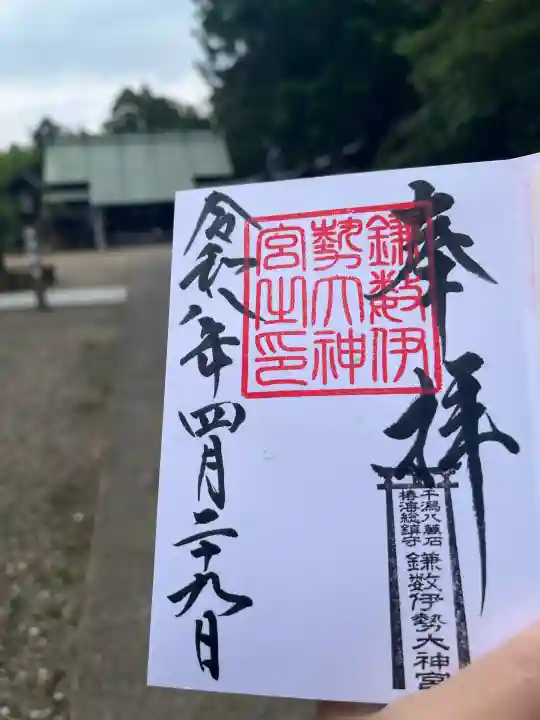 奉拝
干潟八萬石
椿海総鎮守
鎌数伊勢大神宮
鎌数伊
勢大神
宮之印
令和八年四月二十九日